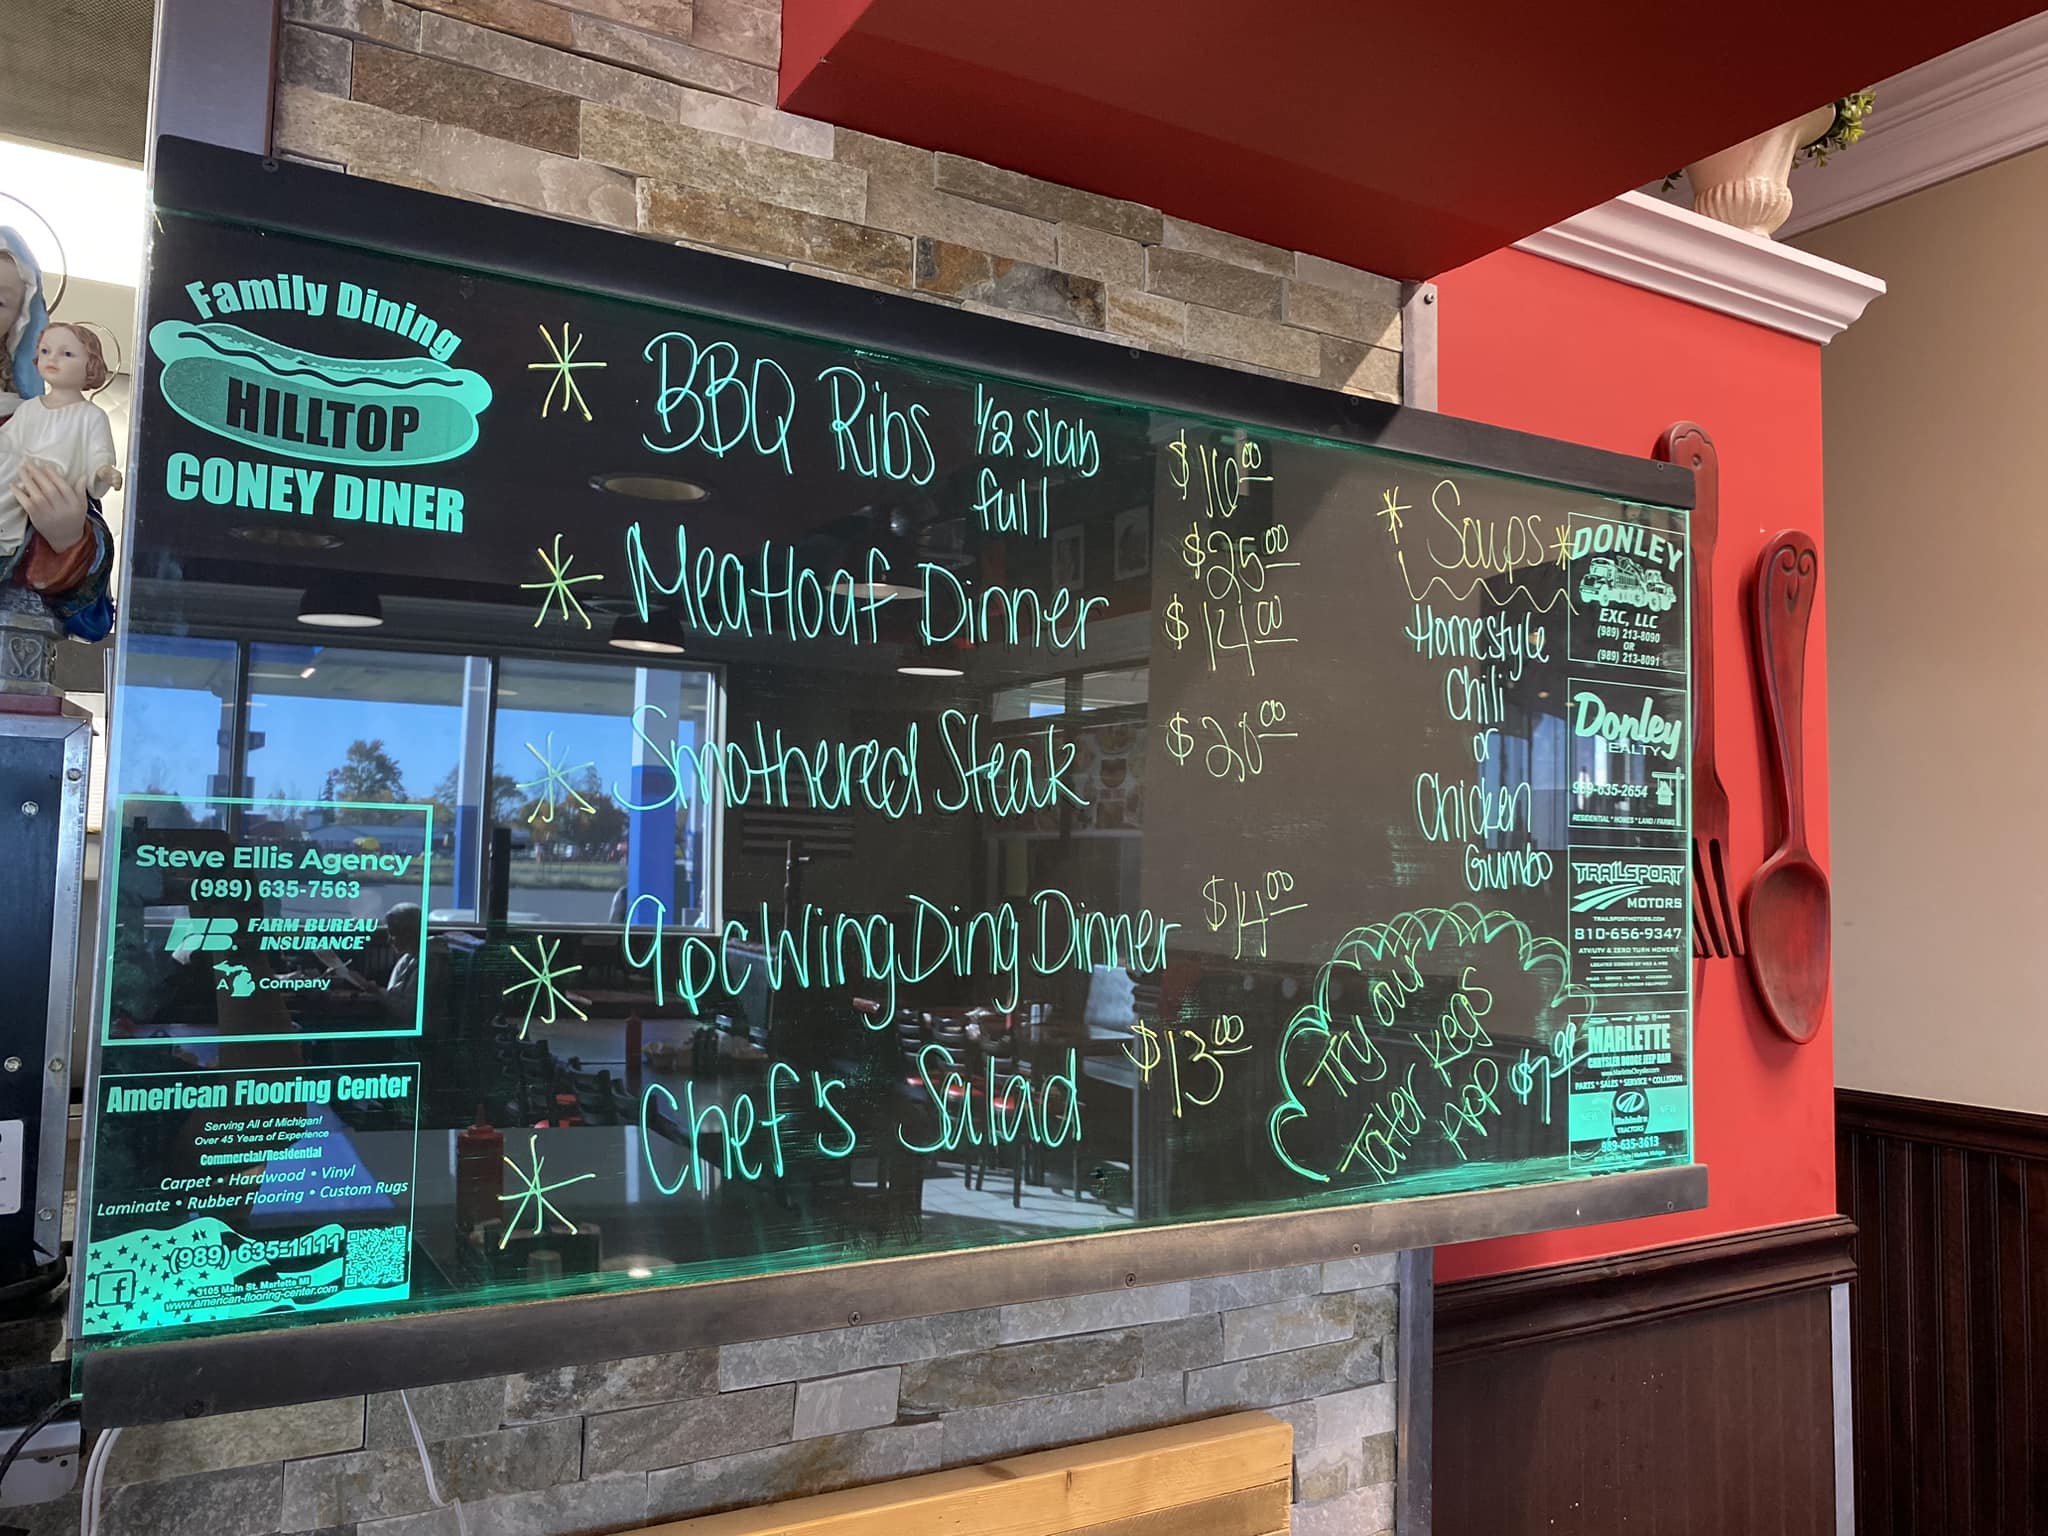 Family Dining
HILLTOP
CONEY DINER
* BBQ Ribs 1/2 slab $16.00
full $25.00
* Meatloaf Dinner $14.00
* Smothered Steak $20.00
* 9pc Wing Ding Dinner $14.00
* Chef's Salad $13.00
* Soups *
Homestyle
Chili
or
Chicken
Gumbo
Try our
Tater Kegs
App $7.99
Steve Ellis Agency
(989) 635-7563
FB® FARM BUREAU
INSURANCE®
A Company
American Flooring Center
Serving All of Michigan!
Over 45 Years of Experience
Commercial/Residential
Carpet • Hardwood • Vinyl
Laminate • Rubber Flooring • Custom Rugs
(989) 635-1111
3105 Main St. Marlette MI
www.american-flooring-center.com
f
DONLEY
EXC, LLC
(989) 213-8090
OR
(989) 213-8091
Donley
REALTY
989-635-2654
RESIDENTIAL * HOMES * LAND / FARMS
TRAILSPORT
MOTORS
TRAILSPORTMOTORS.COM
810-656-9347
ATV/UTV & ZERO TURN MOWERS
Jeep
MARLETTE
CHRYSLER DODGE JEEP RAM
www.MarletteChrysler.com
PARTS * SALES * SERVICE * COLLISION
NEW NEW
Mahindra
TRACTORS
989-635-3613